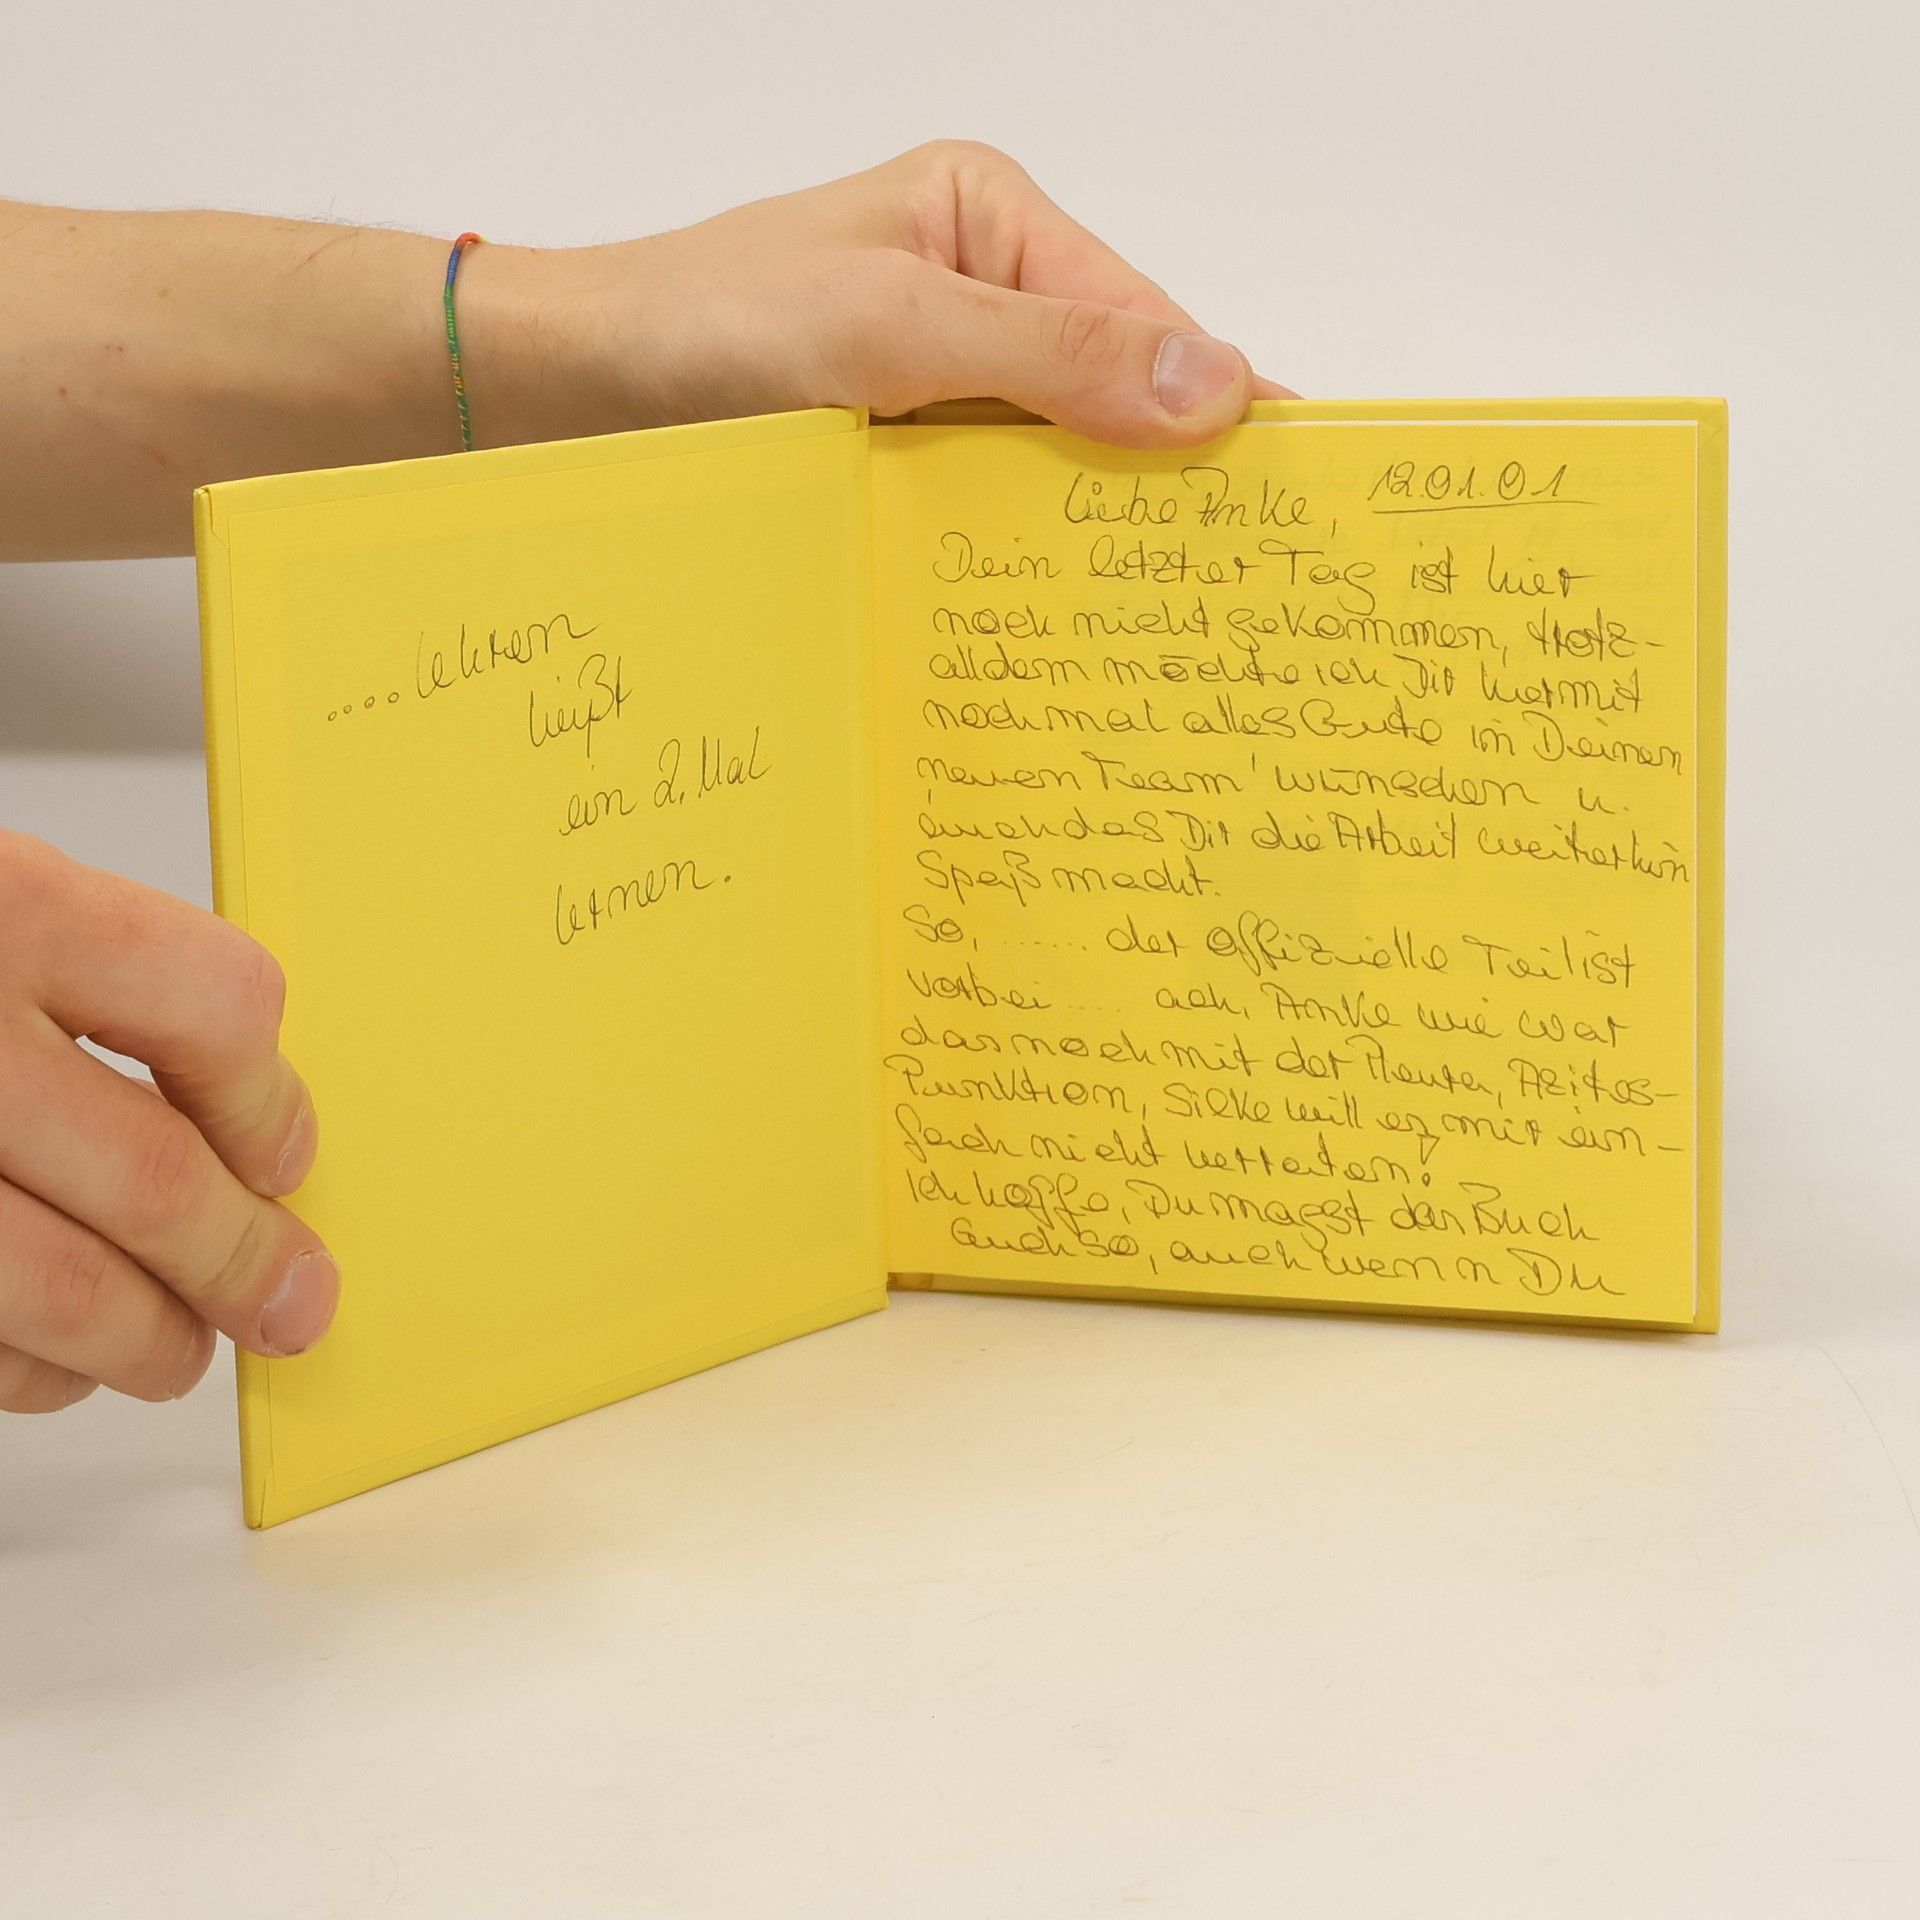 ....lehren
heißt
ein 2. Mal
lernen.
Liebe Anke, 12.01.01
Dein letzter Tag ist hier
noch nicht gekommen, trotz-
alldem möchte ich Dir hiermit
nochmal alles Gute im Deinen
neuen Team wünschen u.
auch das Dir die Arbeit weiterhin
Spaß macht.
So, ...... der offizielle Teil ist
vorbei .... ach, Anke wie war
das noch mit der Pleura, Aszites-
Punktion, Silke will es mir ein-
fach nicht verraten!
Ich hoffe, Du magst das Buch
auch so, auch wenn Du